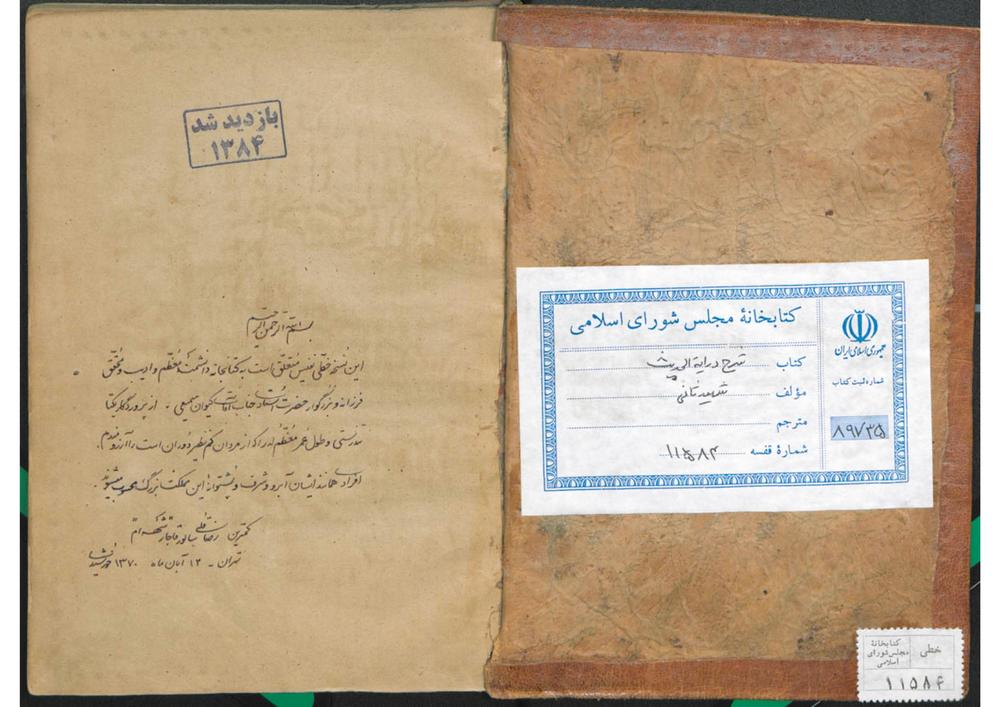 بازدید شد
۱۳۸۴
بسم الله الرحمن الرحیم
این نسخه خطی نفیس متعلق است به کتابخانه دانشمند معظم و ادیب و محقق
فرزانه و بزرگوار حضرت استاد جناب آقای کیوان سمیعی . از پروردگار یکتا
تندرستی و طول عمر معظم له را که از مردان کم نظیر دوران است را آرزومندم
افرادی همانند ایشان آبرو و شرف و پشتوانه این مملکت بزرگ محسوب میشوند .
کمترین رضا قلی قاجار
تهران - ۱۲ آبان ماه ۱۳۷۰ خورشیدی
کتابخانهٔ مجلس شورای اسلامی
کتاب شرح درایة الحدیث
مؤلف شهید ثانی
مترجم
شماره قفسه ۱۱۵۸۴
جمهوری اسلامی ایران
شماره ثبت کتاب
۸۹۷۳۵
خطی
کتابخانهٔ
مجلس شورای
اسلامی
۱۱۵۸۴